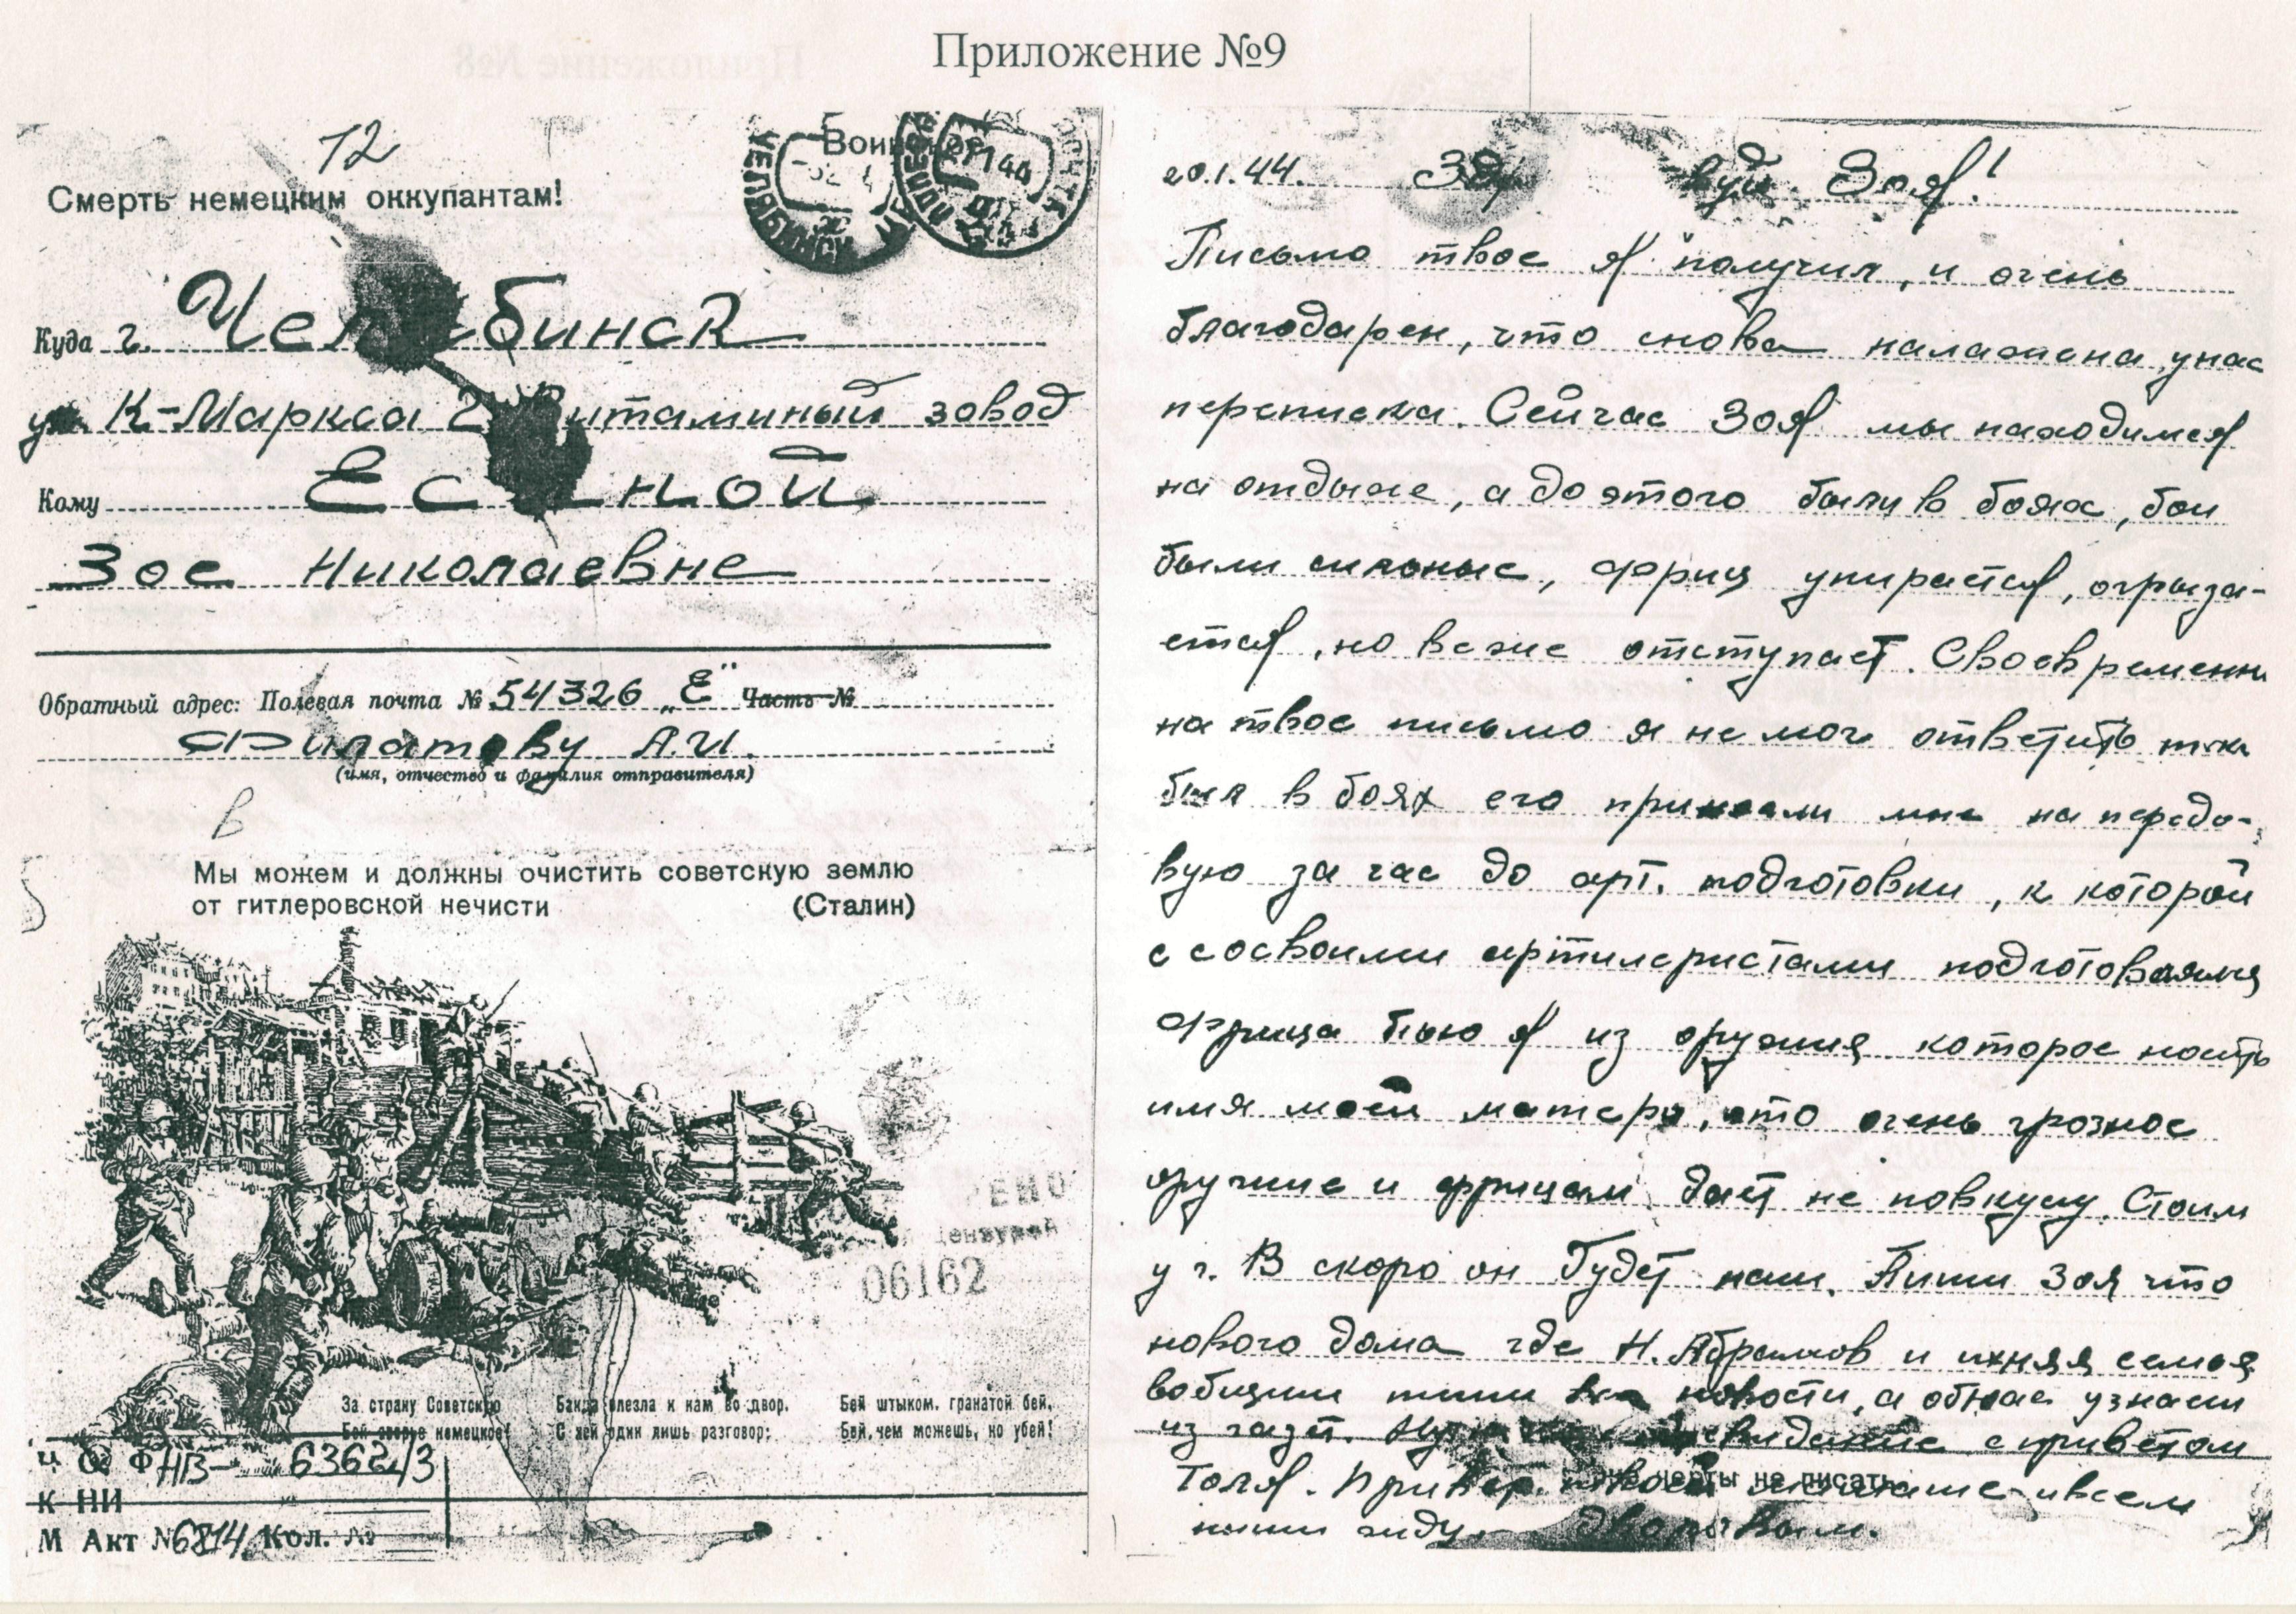 Приложение №9
12
Воинское
Смерть немецким оккупантам!
Куда г. Челябинск
ул. К-Маркса 2 Витаминый завод
Кому Ес ной
Зое Николаевне
Обратный адрес: Полевая почта № 54326 „Е" Часть №
Филатову А.И.
(имя, отчество и фамилия отправителя)
в
Мы можем и должны очистить советскую землю
от гитлеровской нечисти (Сталин)
Цензурой
06162
За страну Советскую
Бей зверье немецкое!
Банда влезла к нам во двор.
С ней один лишь разговор:
Бей штыком, гранатой бей,
Бей, чем можешь, но убей!
Ч О Ф НВ- 6362/3
К НИ
М Акт N6814 Кол. №
20.1.44. Зд вуй Зоя!
Письмо твое я получил, и очень
благодарен, что снова налажена у нас
переписка. Сейчас Зоя мы находимся
на отдыхе, а до этого были в боях, бои
были сильные, фриц упирается, огрыза-
ется, но все же отступает. Своевременно
на твое письмо я не мог ответить т.к.
был в боях его принесли мне на передо-
вую за час до арт. подготовки, к которой
я со своими артилеристами
фрица бью я из оружия которое носить
имя моей матери, это очень грозное
оружие и фрицам дает не по вкусу. Стоим
у г. В скоро он будет наш. Пиши Зоя что
нового дома где Н. Абрамов и ихняя семья
вобщим пиши все новости, а обнас узнаеш
из газет. свидание с приветом
Толя. твоей и всем
На черты не писать
пиши жду.